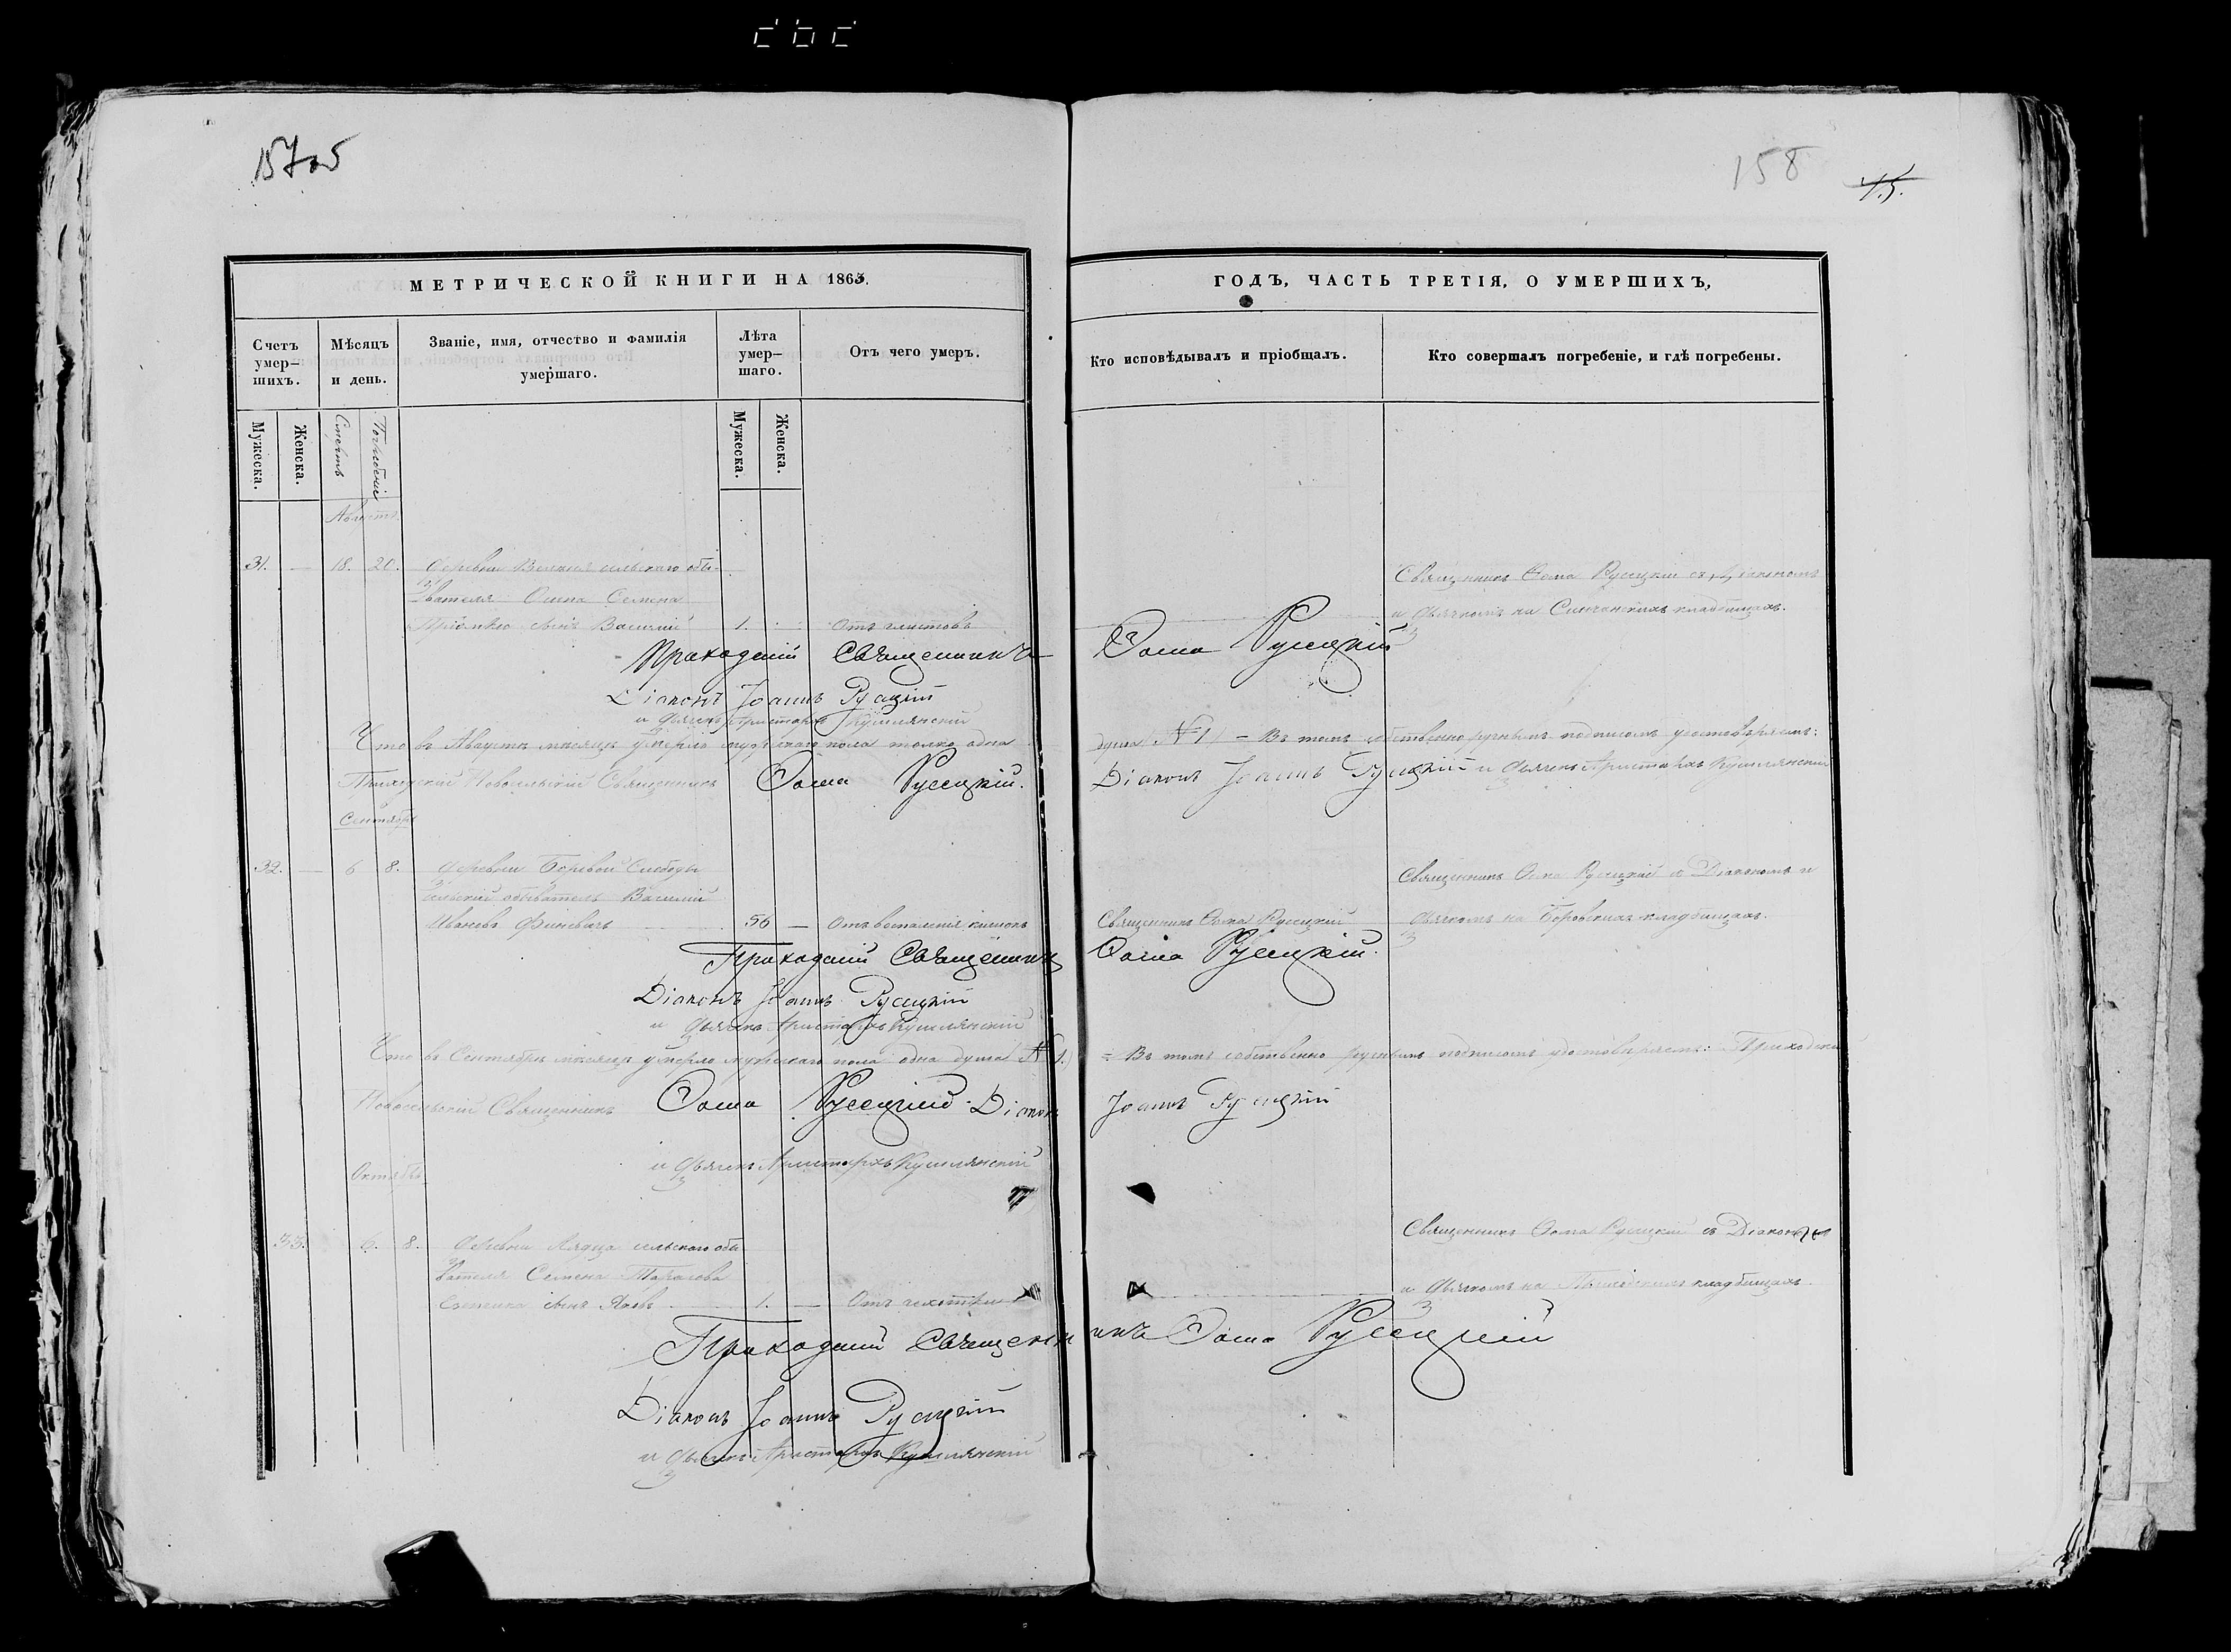 157об
158
45.
МЕТРИЧЕСКОЙ КНИГИ НА 1863.
ГОДЪ, ЧАСТЬ ТРЕТІЯ, О УМЕРШИХЪ,
Счетъ умер-шихъ.
Мѣсяцъ и день.
Званіе, имя, отчество и фамилія умершаго.
Лѣта умер-шаго.
Отъ чего умеръ.
Кто исповѣдывалъ и пріобщалъ.
Кто совершалъ погребеніе, и гдѣ погребены.
Мужеска.
Женска.
Смерть
Погребеніе
Мужеска.
Женска.
Августъ
31. — 18. 20. Деревни сельскаго обы-
вателя Семена
сынъ Василій 1. Отъ глистовъ
Священникъ Ѳома Русецкій съ Діакономъ
и Дьячкомъ на кладбищахъ.
Приходскій Священникъ Ѳома Русецкій
Діаконъ Іоаннъ Русецкій
и Дьячекъ Аристархъ Кушлянскій
Что въ Августѣ мѣсяцѣ умерло мужескаго пола только одна душа (№ 1) — Въ томъ собственноручнымъ подписомъ удостовѣряемъ:
Приходскій Новосельскій Священникъ Ѳома Русецкій. Діаконъ Іоаннъ Русецкій и Дьячекъ Аристархъ Кушлянскій
Сентябрь
32. — 6 8. Деревни Боровой Слободы
сельскій обыватель Василій
Ивановъ 56 — Отъ воспаленія кишокъ Священникъ Ѳома Русецкій
Священникъ Ѳома Русецкій съ Діакономъ и
Дьячкомъ на Боровскихъ кладбищахъ.
Приходскій Священникъ Ѳома Русецкій.
Діаконъ Іоаннъ Русецкій
и Дьячекъ Аристархъ Кушлянскій
Что въ Сентябрѣ мѣсяцѣ умерло мужескаго пола одна душа (№ 1.) = Въ томъ собственно ручнымъ подписомъ удостовѣряемъ: Приходскій
Новосельскій Священникъ Ѳома Русецкій. Діаконъ Іоаннъ Русецкій
и Дьячекъ Аристархъ Кушлянскій
Октябрь
33. 6. 8. Деревни сельскаго обы-
вателя Семена Тарасова
сынъ Яковъ 1. —
Священникъ Ѳома Русецкій съ Діакономъ
и Дьячкомъ на кладбищахъ.
Приходскій Священникъ Ѳома Русецкій
Діаконъ Іоаннъ Русецкій
и Дьячекъ Аристархъ Кушлянскій